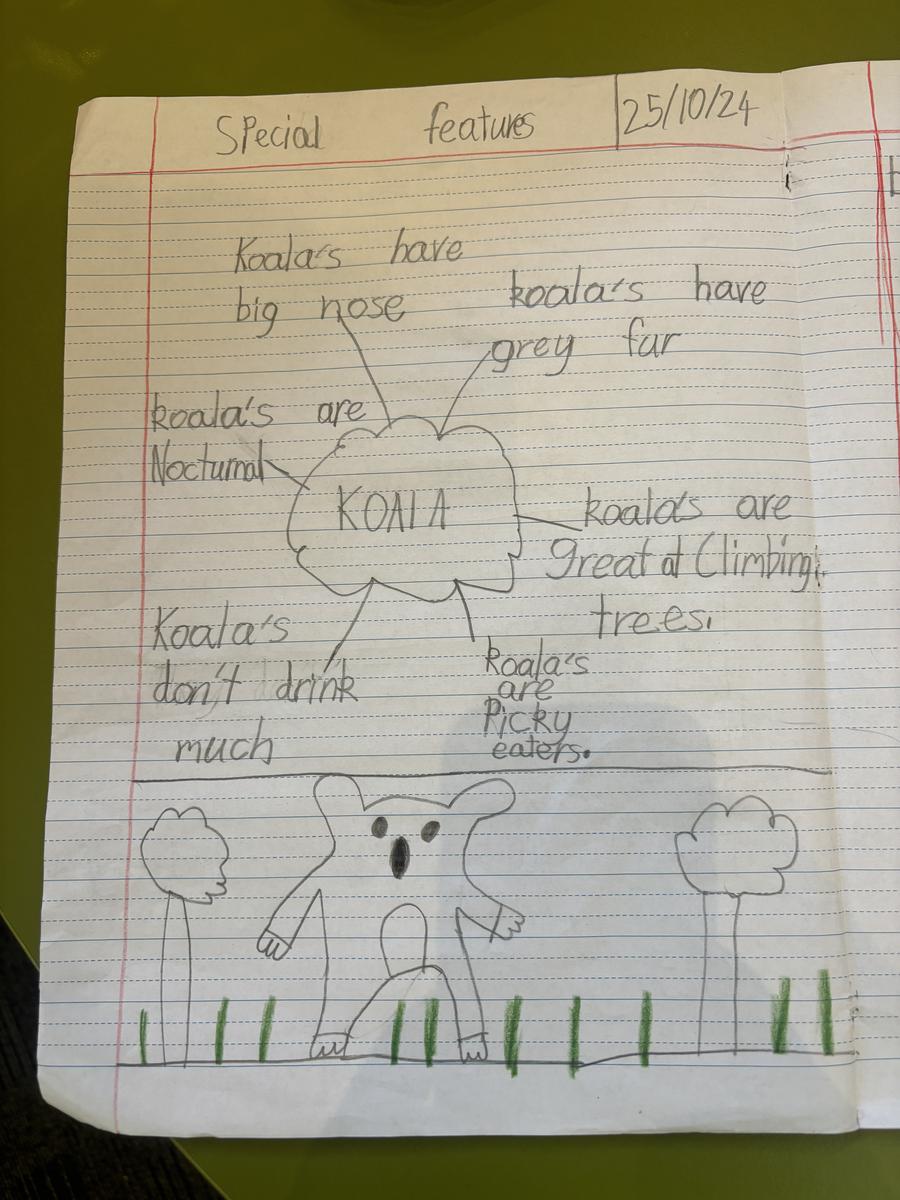 Special features 25/10/24
Koala's have
big nose
koala's have
grey fur
koala's are
Nocturnal
KOALA
koala's are
great at Climbing
trees.
Koala's
don't drink
much
koala's
are
Picky
eaters.